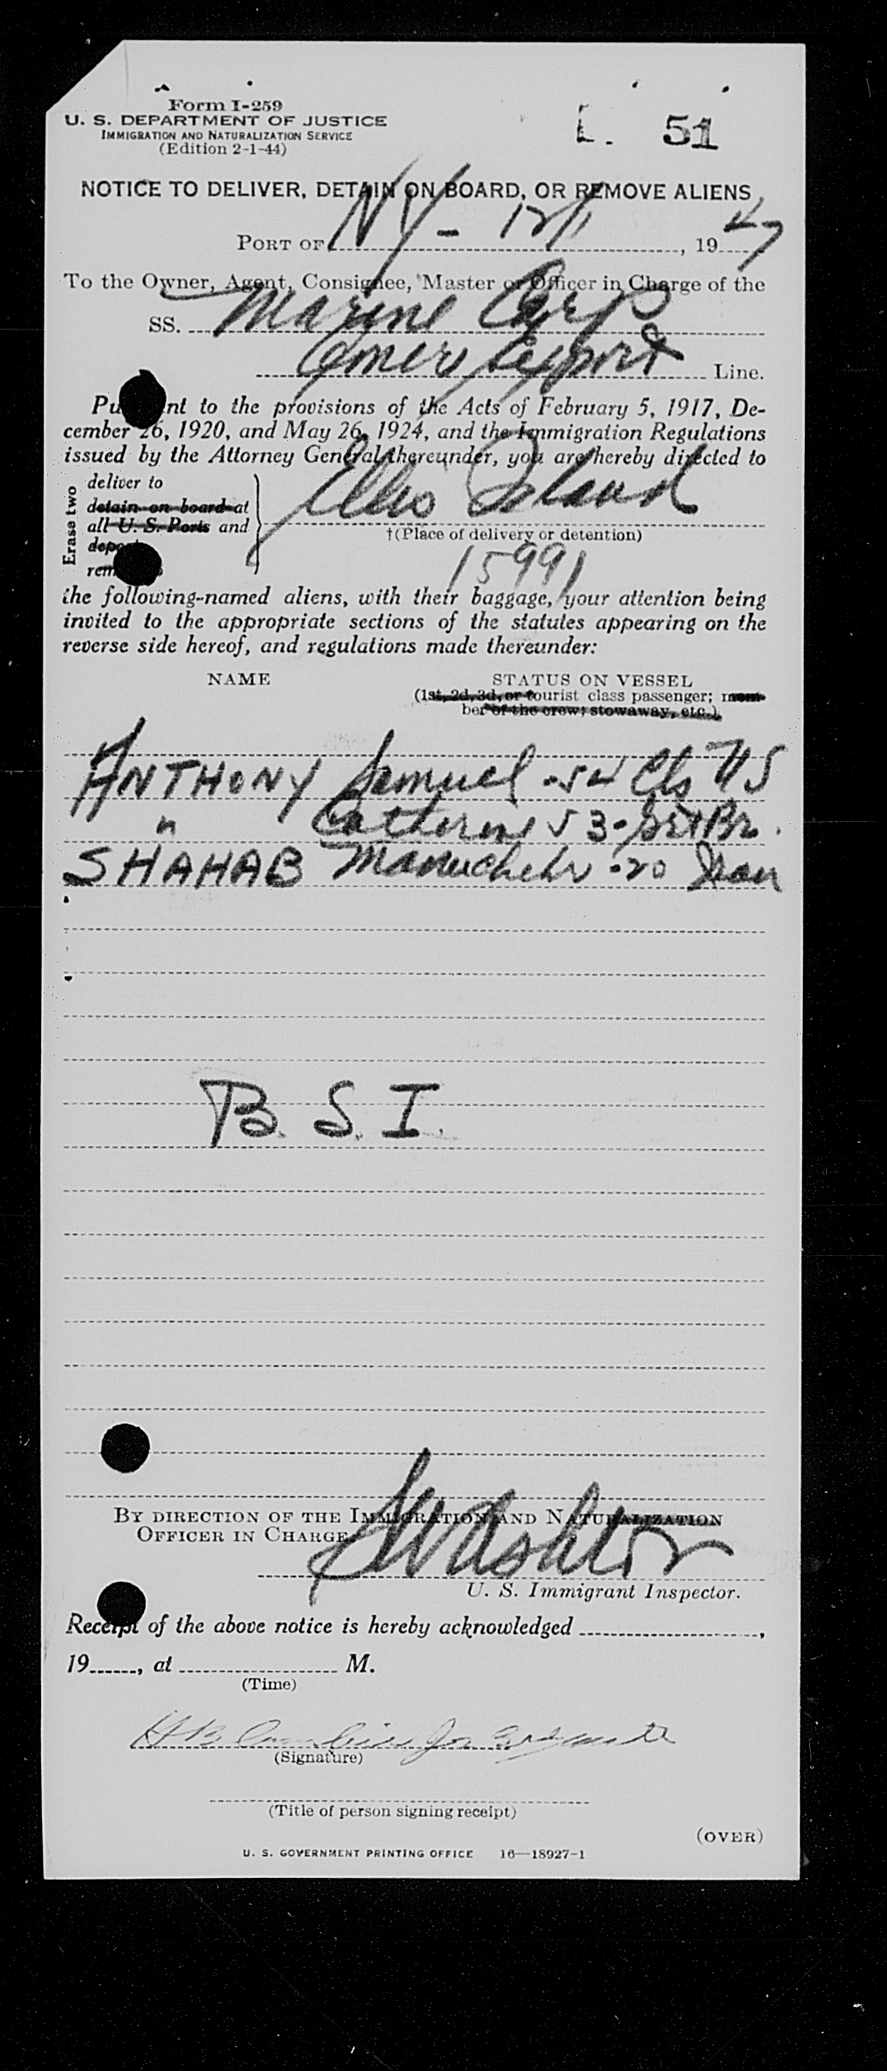 Form I-259
U. S. DEPARTMENT OF JUSTICE
IMMIGRATION AND NATURALIZATION SERVICE
(Edition 2-1-44)
L. 51
NOTICE TO DELIVER, DETAIN ON BOARD, OR REMOVE ALIENS
PORT OF NY - 12/1, 1947
To the Owner, Agent, Consignee, Master or Officer in Charge of the
SS. Marine Carp
Amer Export Line.
Pu nt to the provisions of the Acts of February 5, 1917, De-
cember 26, 1920, and May 26, 1924, and the Immigration Regulations
issued by the Attorney General thereunder, you are hereby directed to
Erase two
deliver to
detain on board at
all U. S. Ports and
depo
rem
Ellis Island
†(Place of delivery or detention)
15991
the following-named aliens, with their baggage, your attention being
invited to the appropriate sections of the statutes appearing on the
reverse side hereof, and regulations made thereunder:
NAME STATUS ON VESSEL
(1st, 2d, 3d, or tourist class passenger; mem-
ber of the crew; stowaway, etc.)
ANTHONY Samuel . 54 Cls US
" Catherine 53 . Brt Br.
SHAHAB Manuchehr . 20 Iran
B. S. I.
BY DIRECTION OF THE IMMIGRATION AND NATURALIZATION
OFFICER IN CHARGE
U. S. Immigrant Inspector.
Receipt of the above notice is hereby acknowledged ,
19 , at M.
(Time)
(Signature)
(Title of person signing receipt)
(OVER)
U. S. GOVERNMENT PRINTING OFFICE 16—18927-1